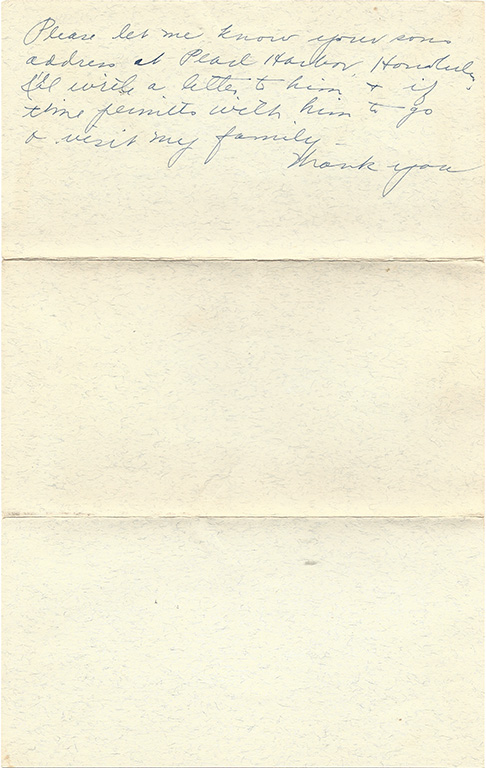 Please let me know your sons
address at Pearl Harbor, Honolulu,
I'll write a letter to him + if
time permits with him to go
& visit my family –
Thank you